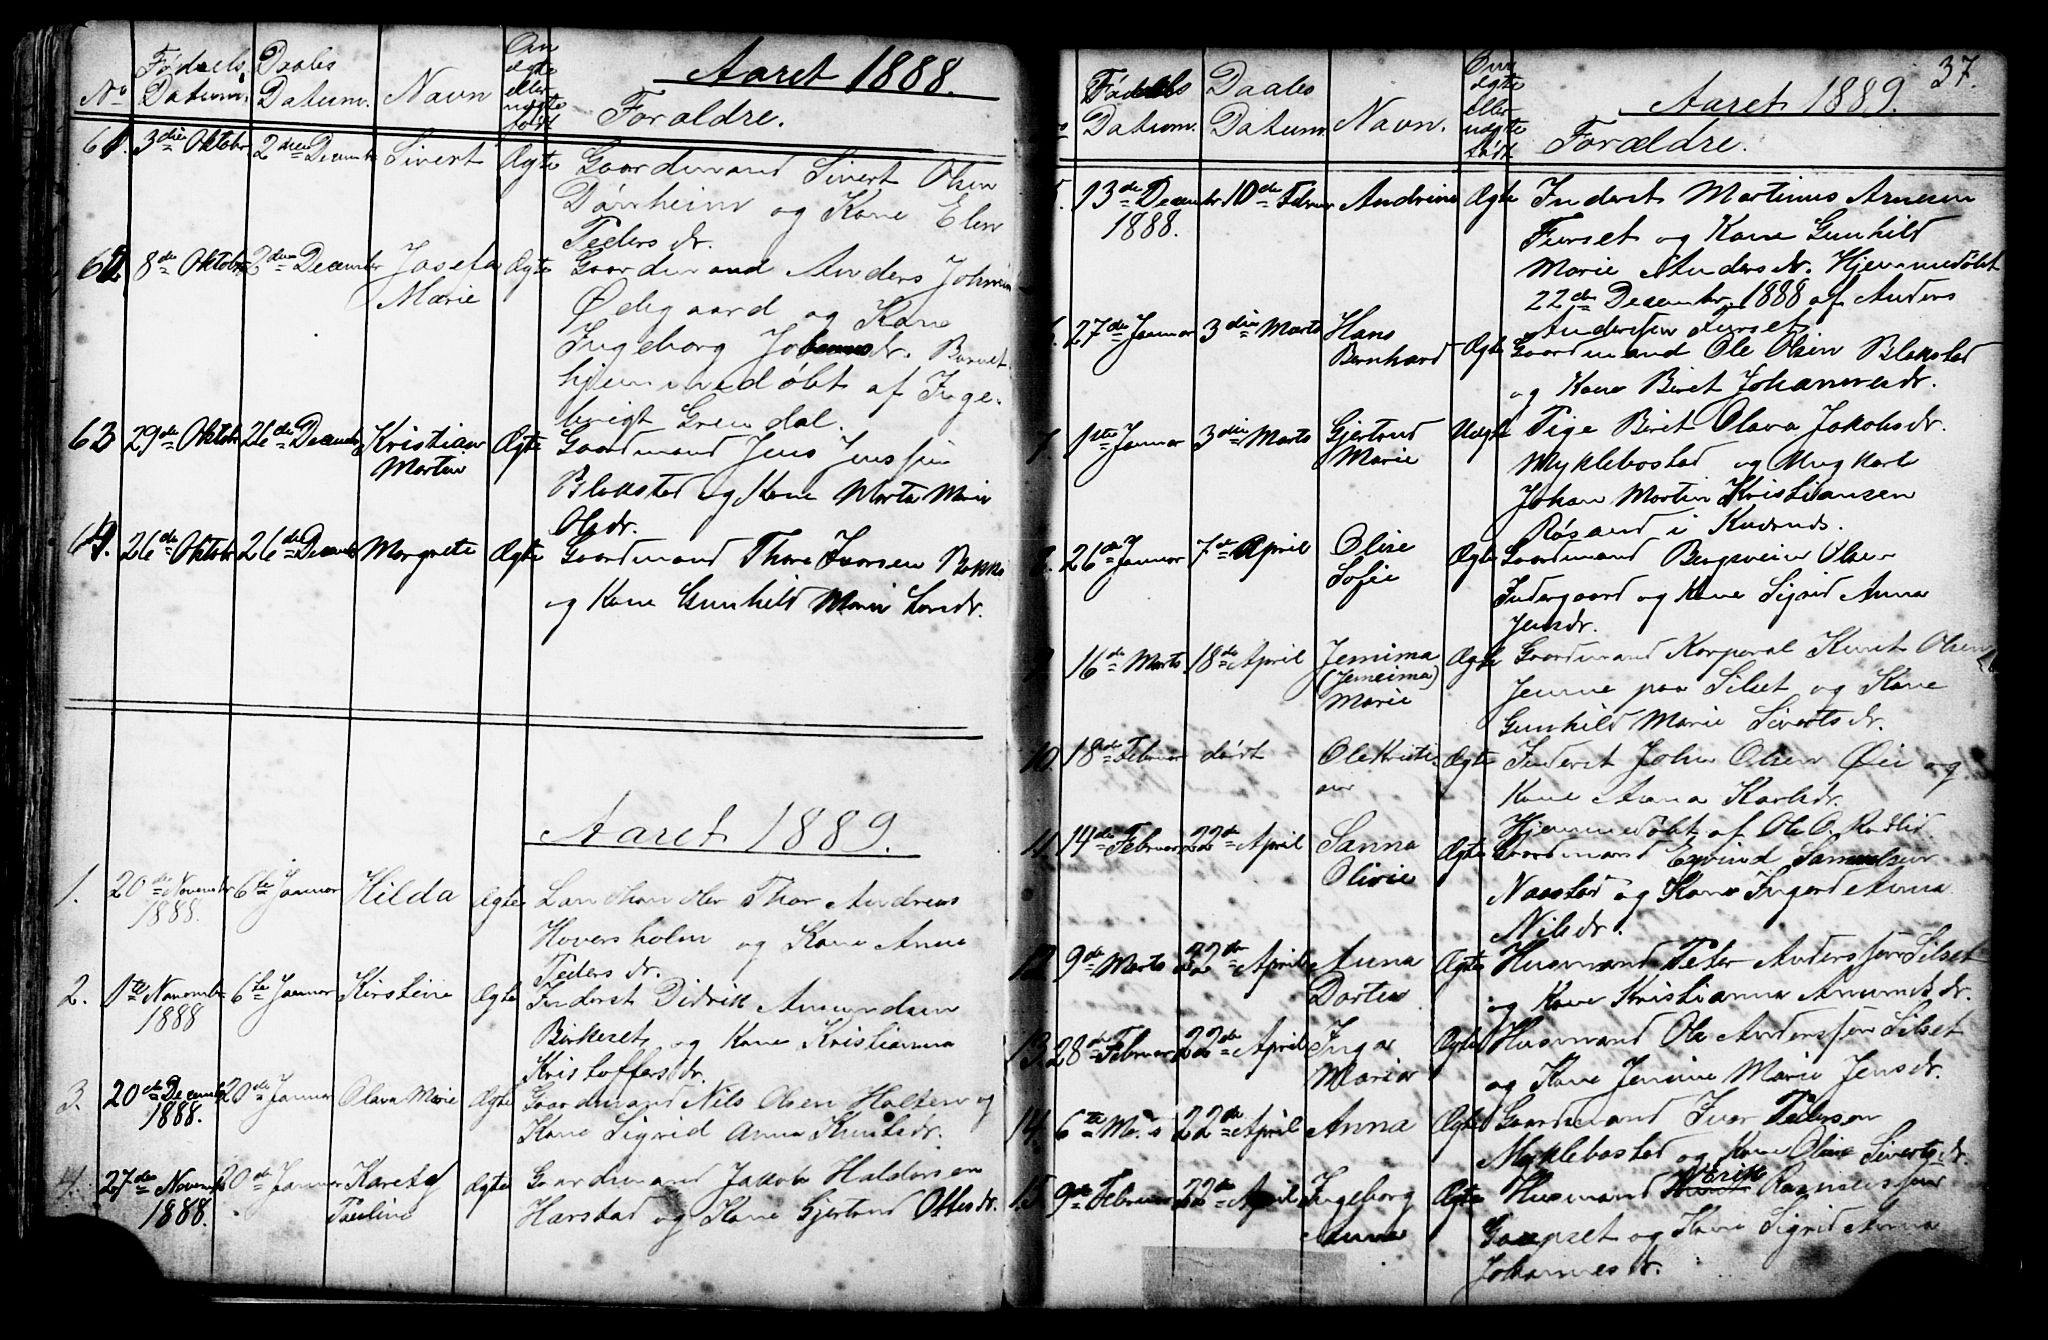 Aaret 1888.
No Fødsels Datum. Daabs Datum. Navn Om ægte eller uægte født Forældre.
61. 3die Oktobr 2den Decembr Sivert Ægte Gaardmand Sivert Olsen
Dørrheim og Kone Elen
Peders dr.
62. 8de Oktobr 2den December Josefa Ægte Gaardmand Anders Johnsen
Marie
Ødegaard og Kone
Ingeborg Johannesdr. Barnet
hjemmedøbt af Inge-
brigt Grendal.
63 29de Oktobr 26de Decembr Kristian Ægte Gaardmand Jens Jenssen
Martin
Blakstad og Kone Marta Marie
Olsdr.
64. 26de Oktobr 26de Decembr Margrete Ægte Gaardmand Thore Iversen Bakke
og Kone Gunhild Marie Larsdr.
Aaret 1889.
1. 20de Novembr 6te Januar Hilda Ægte Landhandler Thor Andreas
1888.
Hoversholm og Kone Anne
Peders dr.
2. 1ste Novembr 6te Januar Kirstine Ægte Inderst Didrik Amundsen
1888
Birkeset og Kone Kristianna
Kristoffersdr.
3. 20de Decembr 20de Januar Olava Marie Ægte Gaardmand Nils Olsen Holten og
1888.
Kone Sigrid Anna Knutsdr.
4. 27de Novembr 20de Januar Karet Ægte Gaardmand Jakob Haldorsen
1888. Pauline
Harstad og Kone Gjertrud Ottesdr.
37.
Aaret 1889.
Fødsels Datum. Daabs Datum. Navn. Om ægte eller uægte født Forældre.
5. 13de Decembr 10de Februar Andrine Ægte Inderst Martinus Arnesen
1888.
Furset og Kone Gunhild
Marie Anders dr. Hjemmedøbt
22de Decembr. 1888 af Anders
Andersen Furset.
6. 27de Januar 3die Marts Hans Ægte Gaardmand Ole Olsen Blakstad
Bernhard
og Kone Beret Johannesdr.
7. 1ste Januar 3die Marts Gjertrud Uægte Pige Beret Olava Jakobsdr.
Marie
Myklebostad og Ungkarl
Johan Martin Kristiansen
Røsand i Kvernes.
8. 26de Januar 7de April Olise Ægte Gaardmand Bergsvein Olsen
Sofie
Indergaard og Kone Sigrid Anna
Jensdr.
9. 16de Marts 18de April Jemima Ægte Gaardmand Korporal Knut Olsen
(Jemeima)
Marie
Jenne paa Silset og Kone
Gunhild Marie Sivertsdr.
10. 18de Februar dødt Ole Kristi- Ægte Inderst John Olsen Øie og
an
Kone Anna Karlsdr.
Hjemmedøbt af Ole O. Rødlid.
11. 14de Februar 22de April Sanna Ægte Gaardmand Eyvind Samuelsen
Olivie
Naastad og Kone Ingerd Anna
Nilsdr.
12. 9de Marts 22de April Anna Ægte Husmand Peter Anderssen Silset
Dortea
og Kone Kristianna Amunds dr.
13. 28de Februar 22de April Inga Ægte Husmand Ole Anderssen Silset
Maria
og Kone Jenine Marie Jensdr.
14. 6te Marts 22de April Anna Ægte Gaardmand Iver Pedersen
Myklebostad og Kone Oline Siverts dr.
15. 9de Februar 22de April Ingeborg Ægte Husmand Erik Rasmussen
Anna
Gaupset og Kone Sigrid Anna
Johannesdr.